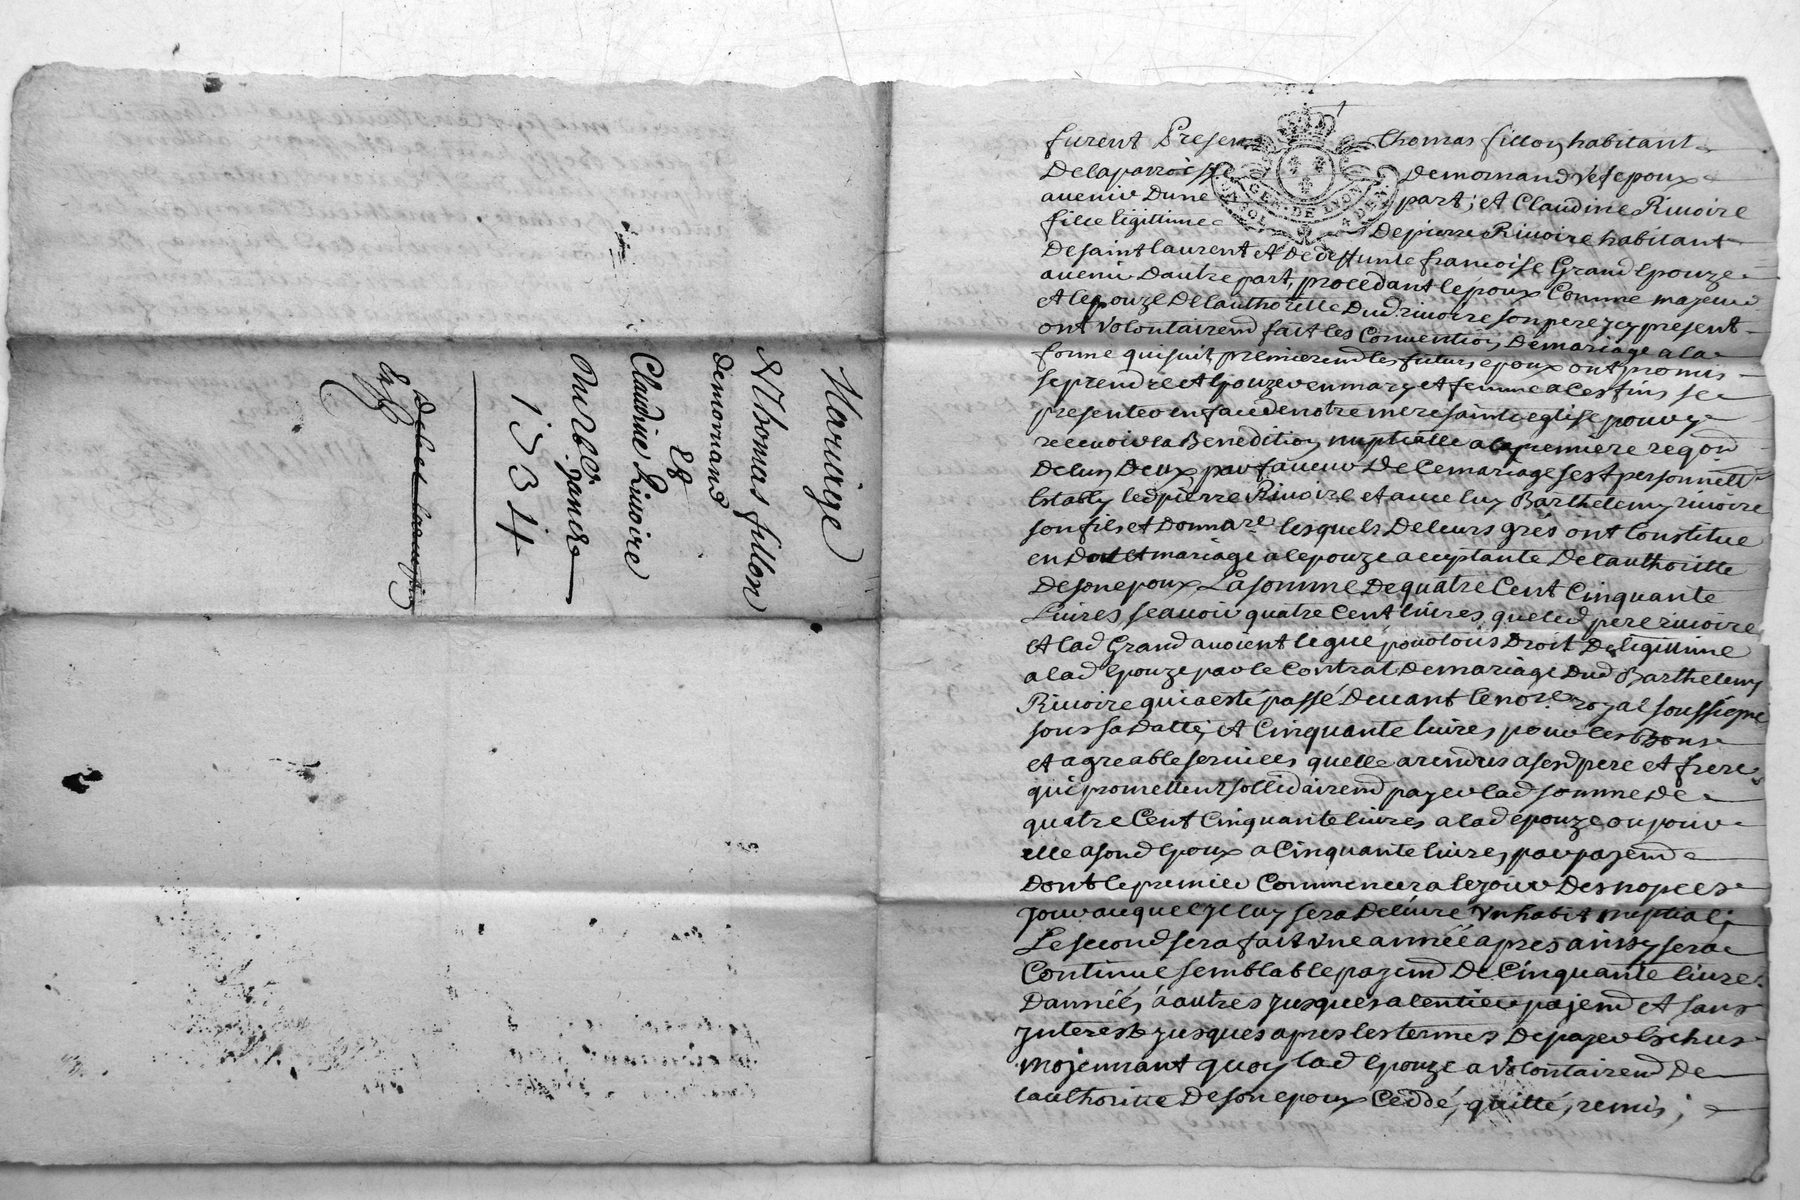 Mariage
Thomas fillon
demornand
Et
Claudine Riuoire
Du Vbe Januier
1734
furent Presen Thomas fillon habitant
De la parroisse de mornand Vefepoux
auenir Dune part; et Claudine Riuoire
fille ligittime De pierre Riuoire habitant
De saint laurent et De deffunte francoise Grand Epouze
auenir Dautre part, procedant lepoux Comme majeur
et lepouze De lauthoritte Dud riuoire son pere icy present
ont volontairemt fait les Convention De mariage a la
forme qui suit, premieremt les futurs epoux ont promis
se prendre et Epouzer en mary et femme a ces fins se
presenter en face de notre mere sainte eglise pour y
receuoir la Benediction nuptialle a la premiere reqon
De lun Deux par faueur De ce mariage sest personnellt
Estably led pierre Riuoire et auec luy Barthelemy riuoire
son fils et Donnare lesquels De leurs grés ont Constitue
en Dot et mariage a lepouze acceptante De lauthoritte
De son epoux La somme De quatre Cent Cinquante
Liures scauoir quatre Cent liures, que led pere riuoire
et lad Grand auoient legué pour tous Droit De legittime
a lad Epouze par le Contrat De mariage Dud Barthelemy
Riuoire qui a esté passé Deuant le nore royal soussigné
sous sa Datte, et Cinquante liures, pour les Bons
et agreable seruices quelle a rendus a sesd pere et frere
qui promettent sollidairemt payer lad somme De
quatre Cent Cinquante liures a lad épouze ou pour
elle a sond Epoux a Cinquante liures, par payemt
Dont le premier Commencera le jour Des nopces
jour auquel il luy sera Deliure Vn habit nuptial;
Le second sera fait Vne année apres ainsy sera
Continué semblable payemt De Cinquante liure
Dannées a autres jusques a lentier payemt et sans
jnterest jusques apres les termes De payer Echus
mojennant quoy lad Epouze a Volontairemt De
lauthoritte De son epoux Ceddé, quitté, remis,